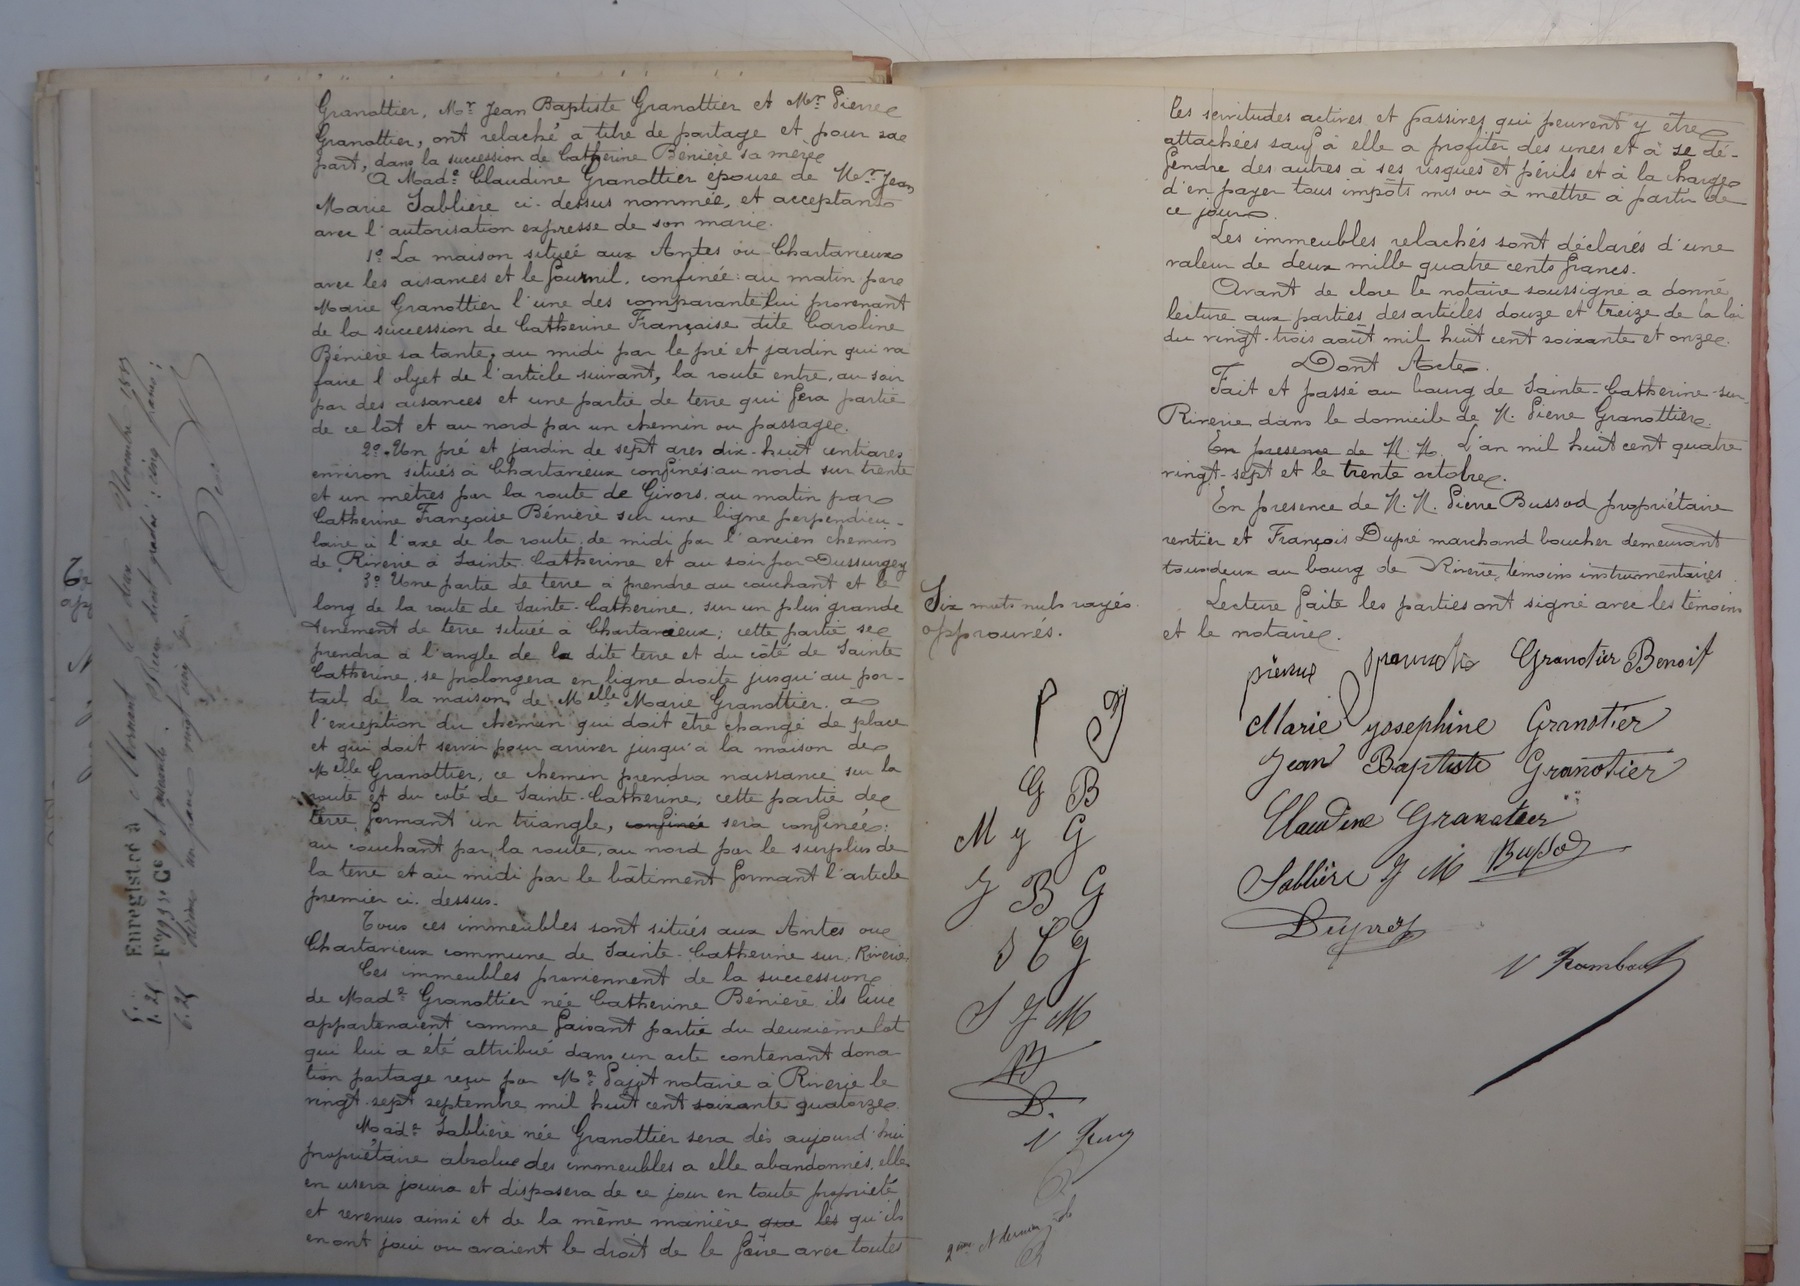 Granottier, Mr Jean Baptiste Granottier et Mr Pierre
Granottier, ont relaché à titre de partage et pour sa
part, dans la succession de Catherine Bénière sa mère
A Made Claudine Granottier épouse de Mr Jean
Marie Sablière ci-dessus nommée, et acceptant
avec l'autorisation expresse de son marie.
1o La maison située aux Antes ou Chartavieux
avec les aisances et le fournil, confinée: au matin par
Marie Granottier l'une des comparante lui provenant
de la succession de Catherine Française dite Caroline
Bénière sa tante, au midi par le pré et jardin qui va
faire l'objet de l'article suivant, la route entre, au soir
par des aisances et une partie de terre qui fera partie
de ce lot et au nord par un chemin ou passage.
2o Un pré et jardin de sept ares dix-huit centiares
environ situés à Chartavieux confinés: au nord sur trente
et un mètres par la route de Givors, au matin par
Catherine Française Bénière sur une ligne perpendicu-
laire à l'axe de la route, de midi par l'ancien chemin
de Riverie à Sainte-Catherine et au soir par Dussurgey
3o Une partie de terre à prendre au couchant et le
long de la route de Sainte-Catherine, sur un plus grande
tenement de terre située à Chartavieux; cette partie se
prendra à l'angle de la dite terre et du côté de Sainte
Catherine, se prolongera en ligne droite jusqu'au por-
tail de la maison de Melle Marie Granottier, à
l'exception du chemin qui doit être changé de place
et qui doit servir pour arriver jusqu'à la maison de
Melle Granottier, ce chemin prendra naissance sur la
route et du coté de Sainte-Catherine, cette partie de
terre formant un triangle, confinée sera confinée:
au couchant par la route, au nord par le surplus de
la terre et au midi par le bâtiment formant l'article
premier ci-dessus.
Tous ces immeubles sont situés aux Antes ou
Chartavieux commune de Sainte-Catherine-sur-Riverie.
Ces immeubles proviennent de la succession
de Made Granottier née Catherine Bénière ils lui
appartenaient comme faisant partie du deuxième lot
qui lui a été attribué dans un acte contenant dona
tion partage reçu par Me Pajot notaire à Riverie le
vingt-sept septembre mil huit cent soixante quatorze.
Made Sablière née Granottier sera dès aujourd'hui
propriétaire absolue des immeubles a elle abandonnés, elle
en usera jouira et disposera de ce jour en toute propriété
et revenus ainsi et de la même manière que les qu'ils
en ont joui ou avaient le droit de le faire avec toutes
Enregistré à Mornant le deux Novembre 1887
Fo 99 Vo Ce
5..
1.25
6.25
les servitudes actives et passives qui peuvent y être
attachées sauf à elle a profiter des unes et à se dé-
fendre des autres à ses risques et périls et à la charge
d'en payer tous impôts mis ou à mettre à partir de
ce jour.
Les immeubles relachés sont déclarés d'une
valeur de deux mille quatre cents francs.
Avant de clore le notaire soussigné a donné
lecture aux parties des articles douze et treize de la loi
du vingt-trois août mil huit cent soixante et onze.
Dont Acte.
Fait et passé au bourg de Sainte-Catherine-sur-
Riverie dans le domicile de M. Pierre Granottier.
En presence de M. M. L'an mil huit cent quatre
vingt-sept et le trente octobre.
En présence de M. M. Pierre Bussod propriétaire
rentier et François Dupré marchand boucher demeurant
tous deux au bourg de Riverie, témoins instrumentaires.
Lecture faite les parties ont signé avec les témoins
et le notaire.
Six mots nuls rayés
approuvés.
Granotier Benoit
Marie yosephine Granotier
Jean Baptiste Granotier
Claudine Granotier
Sablière J M Bussod
Dupré
P G
G B
M y G
J B G
S J M
B
D.